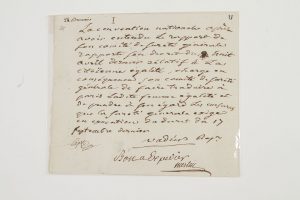 La convention nationale après
avoir entendu le rapport de
son comité de sureté générale
rapporte son décret du huit
avril dernier relatif à la
citoyenne egalité, charge en
conséquence son comité de sureté
générale de faire traduire à
paris ladite femme egalité et
de prendre à son égard les mesures
que la sureté générale exige
en execution du décret du 17
septembre dernier
vadier
Bon a Expedier